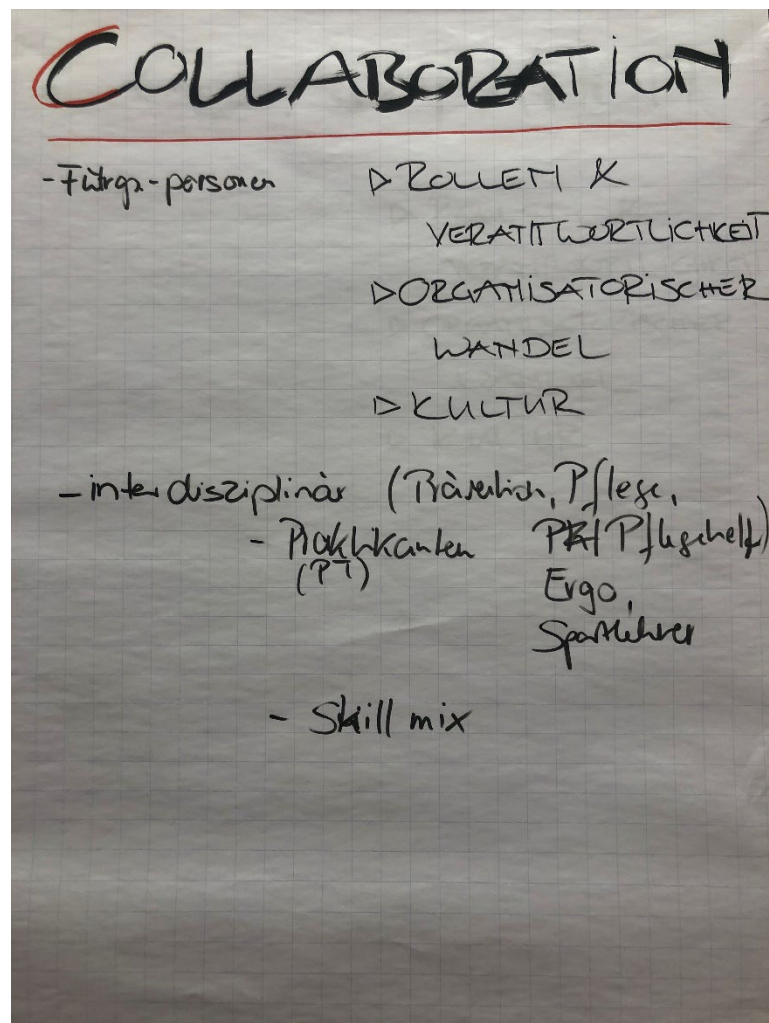 COLLABORATION
- Führgs-personen
▷ ROLLEN &
VERANTWORTLICHKEIT
▷ ORGANISATORISCHER
WANDEL
▷ KULTUR
- interdisziplinär (Pflege,
- Praktikanten Pflegehelf)
(PT) Ergo,
Sportlehrer
- Skill mix